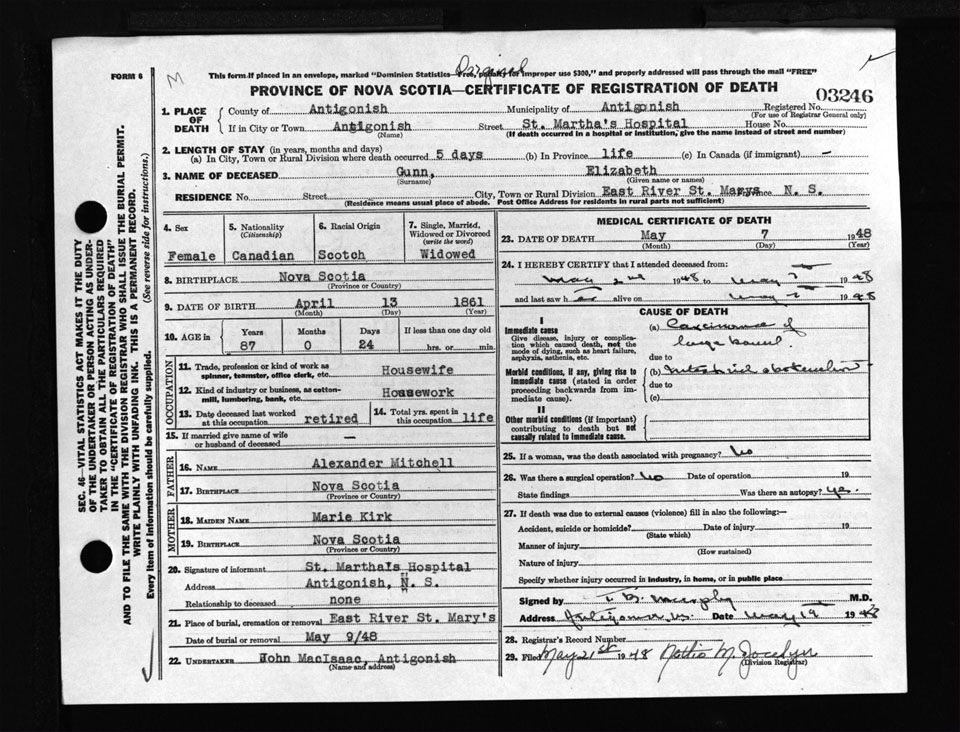 Original
This form if placed in an envelope, marked "Dominion Statistics—Free, penalty for improper use $300," and properly addressed will pass through the mail "FREE"
FORM 6
PROVINCE OF NOVA SCOTIA—CERTIFICATE OF REGISTRATION OF DEATH
03246
1. PLACE OF DEATH
County of Antigonish Municipality of Antigonish Registered No.
(For use of Registrar General only)
If in City or Town Antigonish Street St. Martha's Hospital House No.
(Name) (If death occurred in a hospital or institution, give the name instead of street and number)
2. LENGTH OF STAY (in years, months and days)
(a) In City, Town or Rural Division where death occurred 5 days (b) In Province life (c) In Canada (if immigrant) —
3. NAME OF DECEASED Gunn, Elizabeth
(Surname) (Given name or names)
RESIDENCE No. Street City, Town or Rural Division East River St. Marys Province N. S.
(Residence means usual place of abode. Post Office Address for residents in rural parts not sufficient)
4. Sex
Female
5. Nationality
(Citizenship)
Canadian
6. Racial Origin
Scotch
7. Single, Married, Widowed or Divorced
(write the word)
Widowed
8. BIRTHPLACE Nova Scotia
(Province or Country)
9. DATE OF BIRTH April 13 1861
(Month) (Day) (Year)
10. AGE in
Years Months Days If less than one day old
87 0 24 hrs. or min.
OCCUPATION
11. Trade, profession or kind of work as spinner, teamster, office clerk, etc. Housewife
12. Kind of industry or business, as cotton-mill, lumbering, bank, etc. Housework
13. Date deceased last worked at this occupation retired
14. Total yrs. spent in this occupation life
15. If married give name of wife or husband of deceased —
FATHER
16. NAME Alexander Mitchell
17. BIRTHPLACE Nova Scotia
(Province or Country)
MOTHER
18. MAIDEN NAME Marie Kirk
19. BIRTHPLACE Nova Scotia
(Province or Country)
20. Signature of informant St. Martha's Hospital
Address Antigonish, N. S.
Relationship to deceased none
21. Place of burial, cremation or removal East River St. Mary's
Date of burial or removal May 9/48
22. UNDERTAKER John MacIsaac, Antigonish
(Name and address)
MEDICAL CERTIFICATE OF DEATH
23. DATE OF DEATH May 7 1948
(Month) (Day) (Year)
24. I HEREBY CERTIFY that I attended deceased from:
May 2nd 1948 to May 7 1948
and last saw her alive on May 7 1948
CAUSE OF DEATH
I
Immediate cause
Give disease, injury or complication which caused death, not the mode of dying, such as heart failure, asphyxia, asthenia, etc.
(a) Carcinoma of
large bowel.
due to
Morbid conditions, if any, giving rise to immediate cause (stated in order proceeding backwards from immediate cause).
(b) Intestinal obstruction
due to
(c)
II
Other morbid conditions (if important) contributing to death but not causally related to immediate cause.
25. If a woman, was the death associated with pregnancy? No
26. Was there a surgical operation? No Date of operation 19
State findings Was there an autopsy? yes.
27. If death was due to external causes (violence) fill in also the following:—
Accident, suicide or homicide? Date of injury 19
(State which)
Manner of injury
(How sustained)
Nature of injury
Specify whether injury occurred in industry, in home, or in public place
Signed by T. B. Murphy M.D.
Address Antigonish, N.S. Date May 19 1948
28. Registrar's Record Number
29. Filed May 21st 1948 Nettie M. Jocelyn
(Division Registrar)
SEC. 46—VITAL STATISTICS ACT MAKES IT THE DUTY
OF THE UNDERTAKER OR PERSON ACTING AS UNDER-
TAKER TO OBTAIN ALL THE PARTICULARS REQUIRED
IN THE "CERTIFICATE OF REGISTRATION OF DEATH"
AND TO FILE THE SAME WITH THE DIVISION REGISTRAR WHO SHALL ISSUE THE BURIAL PERMIT.
WRITE PLAINLY WITH UNFADING INK. THIS IS A PERMANENT RECORD.
Every item of information should be carefully supplied. (See reverse side for instructions.)